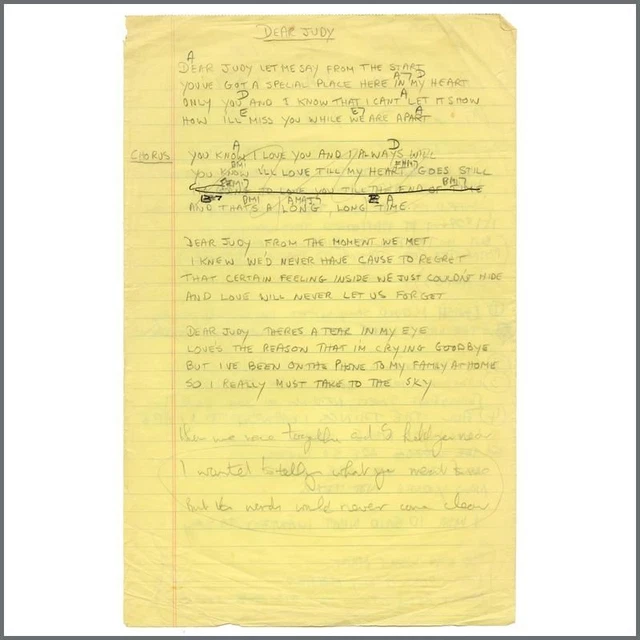 DEAR JUDY
A
DEAR JUDY LET ME SAY FROM THE START
A7 D
YOU'VE GOT A SPECIAL PLACE HERE IN MY HEART
D A
ONLY YOU AND I KNOW THAT I CAN'T LET IT SHOW
E E7 A
HOW I'LL MISS YOU WHILE WE ARE APART
A D
CHORUS YOU KNOW I LOVE YOU AND I ALWAYS WILL
DMI
YOU KNOW I'LL LOVE TILL MY HEART GOES STILL
BMI7
TO LOVE YOU TILL THE END OF
DMI AMAJ7 E A
AND THAT'S A LONG, LONG TIME.
DEAR JUDY FROM THE MOMENT WE MET
I KNEW WE'D NEVER HAVE CAUSE TO REGRET
THAT CERTAIN FEELING INSIDE WE JUST COULDN'T HIDE
AND LOVE WILL NEVER LET US FORGET
DEAR JUDY THERES A TEAR IN MY EYE
LOVE'S THE REASON THAT I'M CRYING GOODBYE
BUT I'VE BEEN ON THE PHONE TO MY FAMILY AT HOME
SO I REALLY MUST TAKE TO THE SKY
When we were together and I held you near
I wanted to tell you what you mean to me
But the words would never come clear